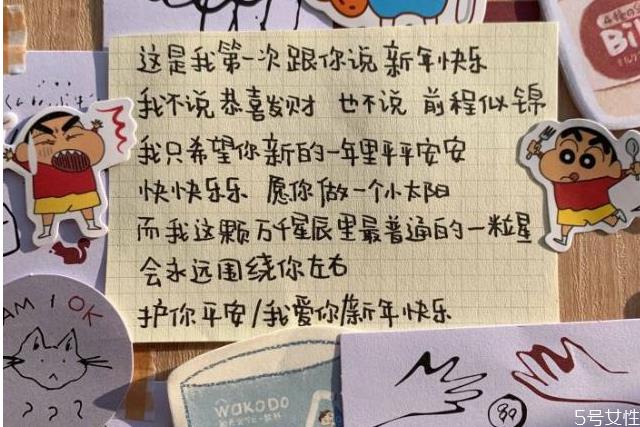 这是我第一次跟你说 新年快乐
我不说恭喜发财 也不说 前程似锦
我只希望你新的一年里平平安安
快快乐乐 愿你做一个小太阳
而我这颗万千星辰里最普通的一粒星
会永远围绕你左右
护你平安/我爱你/新年快乐
AM I OK
? ? ?
WAKODO
5号女性